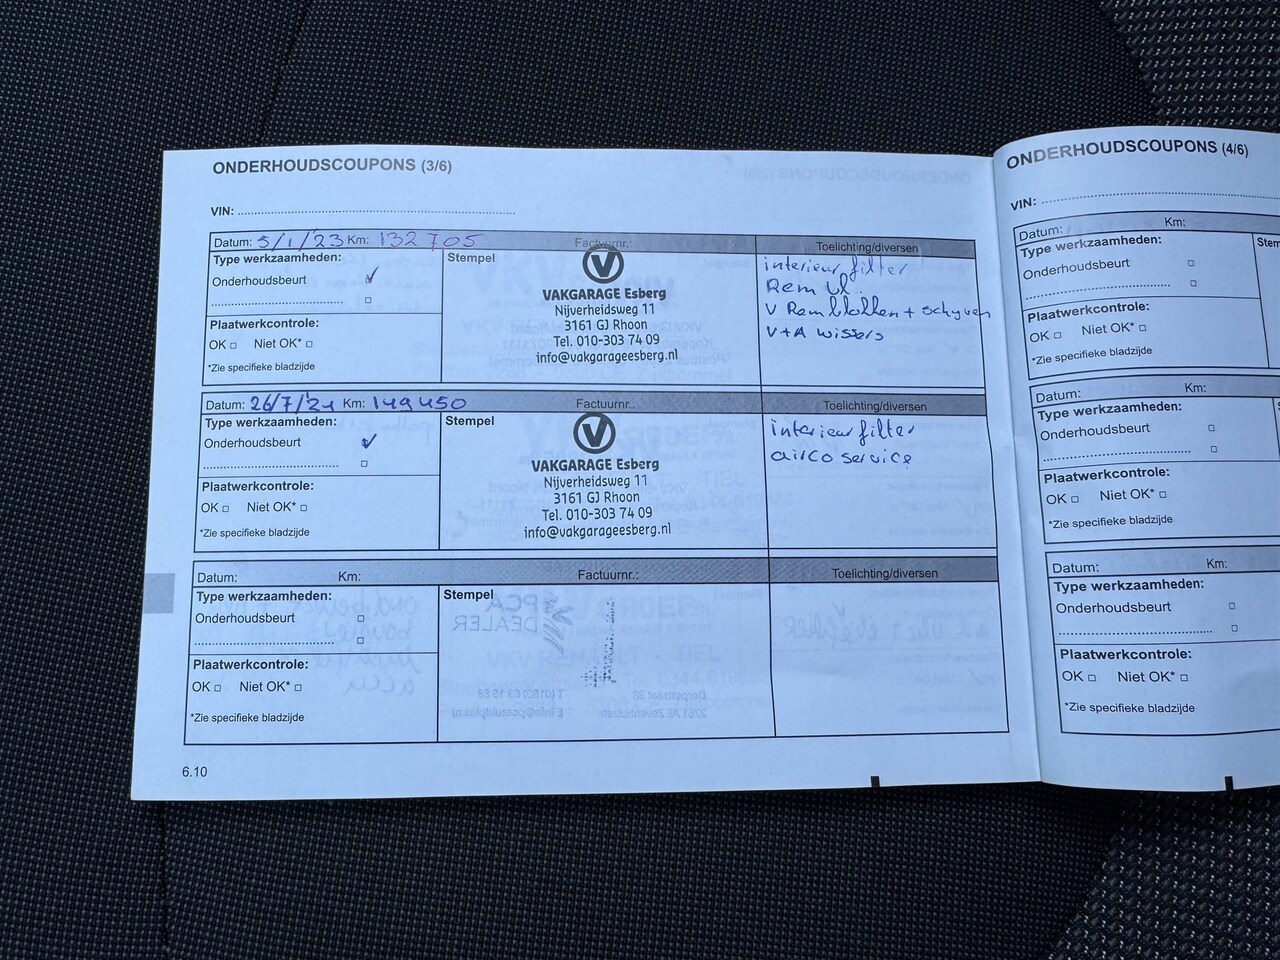 ONDERHOUDSCOUPONS (3/6)
VIN:
Datum: 5/1/23 Km: 132705 Factuurnr.: Toelichting/diversen
Type werkzaamheden:
Onderhoudsbeurt ✓
Plaatwerkcontrole:
OK □ Niet OK* □
*Zie specifieke bladzijde
Stempel
V
VAKGARAGE Esberg
Nijverheidsweg 11
3161 GJ Rhoon
Tel. 010-303 74 09
info@vakgarageesberg.nl
interieur filter
Rem vl.
V Remblokken + schijven
V+A wissers
Datum: 26/7/24 Km: 149450 Factuurnr.: Toelichting/diversen
Type werkzaamheden:
Onderhoudsbeurt ✓
Plaatwerkcontrole:
OK □ Niet OK* □
*Zie specifieke bladzijde
Stempel
V
VAKGARAGE Esberg
Nijverheidsweg 11
3161 GJ Rhoon
Tel. 010-303 74 09
info@vakgarageesberg.nl
interieur filter
airco service
Datum: Km: Factuurnr.: Toelichting/diversen
Type werkzaamheden:
Onderhoudsbeurt □
Plaatwerkcontrole:
OK □ Niet OK* □
*Zie specifieke bladzijde
Stempel
6.10
ONDERHOUDSCOUPONS (4/6)
VIN:
Datum: Km:
Type werkzaamheden:
Onderhoudsbeurt □
Plaatwerkcontrole:
OK □ Niet OK* □
*Zie specifieke bladzijde
Datum: Km:
Type werkzaamheden:
Onderhoudsbeurt □
Plaatwerkcontrole:
OK □ Niet OK* □
*Zie specifieke bladzijde
Datum: Km:
Type werkzaamheden:
Onderhoudsbeurt □
Plaatwerkcontrole:
OK □ Niet OK* □
*Zie specifieke bladzijde